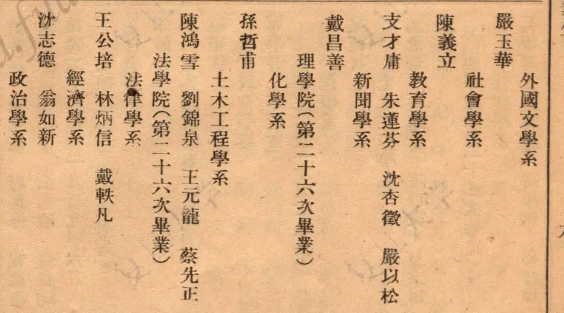 外國文學系
嚴玉華
社會學系
陳義立
教育學系
支才庸 朱蓮芬 沈杏徵 嚴以松
新聞學系
戴昌善
理學院(第二十六次畢業)
化學系
孫哲甫
土木工程學系
陳鴻雪 劉錦泉 王元龍 蔡先正
法學院(第二十六次畢業)
法律學系
王公培 林炳信 戴軼凡
經濟學系
沈志德 翁如新
政治學系